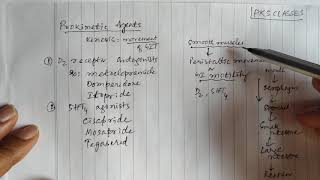 PKS CLASSES
Prokinetic Agents
Kinesis: movement
of GIT
① D2 receptor Antagonists
ex: metoclopramide
Domperidone
Itopride
② 5HT4 agonists
Cisapride
Mosapride
Tegaserod
Smooth muscles
↓
Peristaltic movement
GI motility
D2, 5HT4
mouth
↓
↓
Stomach
↓
Small
intestine
↓
Large
intestine
↓
Rectum